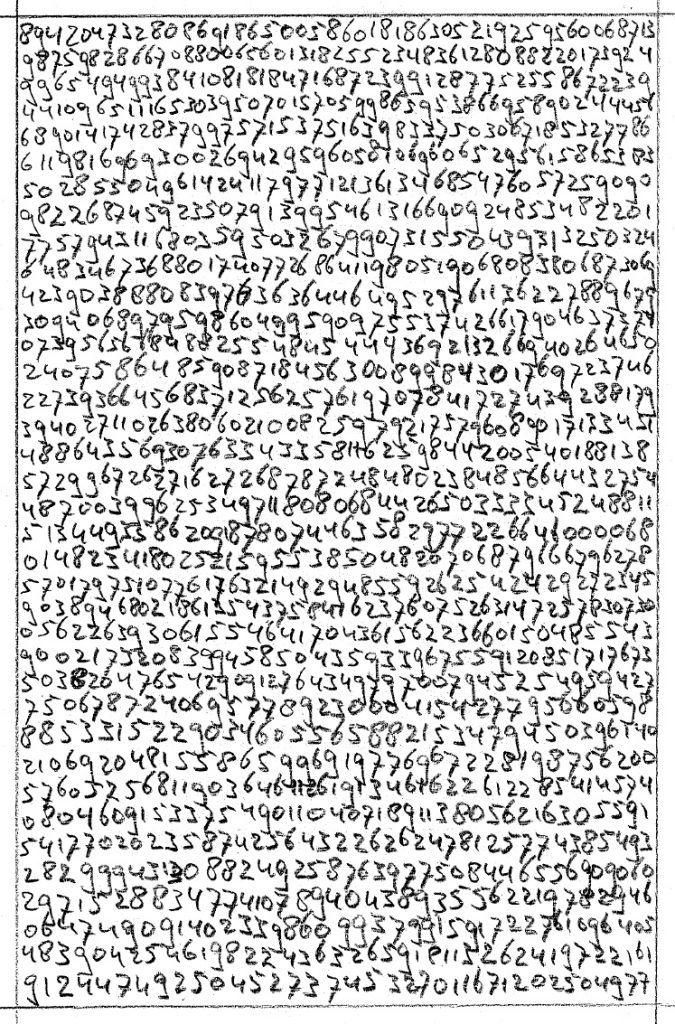 894120473280869186500586018186305219259560068713
98759828667088006560131825523483612808822017392 4
996549499384108181847168723991287752558672239
4410965111653039507015705998659538669589024445 6
689014174283799757153751639833750306718532778 6
6119816969300269429596050106960652956158653 83
50285504961424117977121361346854760572590 90
98226874592350791399546131669092485348220 1
77579443116803595032679907315504393132503 24
648346736880174077268641198051906808380687306 9
423903888083976363644649529761136227889679
309406897959860499590975537426617904637379
073956567848825548454443692132669402646 50
240758648590871845630089984301769723746
227393664568371256257619707841722439288179
394027110263806021008259792175796089017133451
488643556930763343358116259844200540188138
572996726271627226878722484802384856644327 54
487003996253497118080684426503333452488 11
513449558620918780744635829772266460000 68
014823418025215955385048207068791667962 78
570179751077617632149294855926254242927 2345
903894680215613554375841162376075263147257830730
056226393061554641704361562236601504855 43
900217320839945850435933967559120851717673
503820476542909127643497970079452549594 27
75067872406957789230004154277950605 98
885331522903460556588215347945039614 0
210692048155865996919776967228198756200
576052568119036464126191346167226122854145 74
080460915337549011040718911380562163055 91
541770202358742564322626247812577438549 3
28299943130882492587639775084465569090 60
297152883477410789404389355622197829 46
064749091402339860993799159172276109640 5
483904254619822436326591811526241972216 1
912447492504527374532701167120250497 7